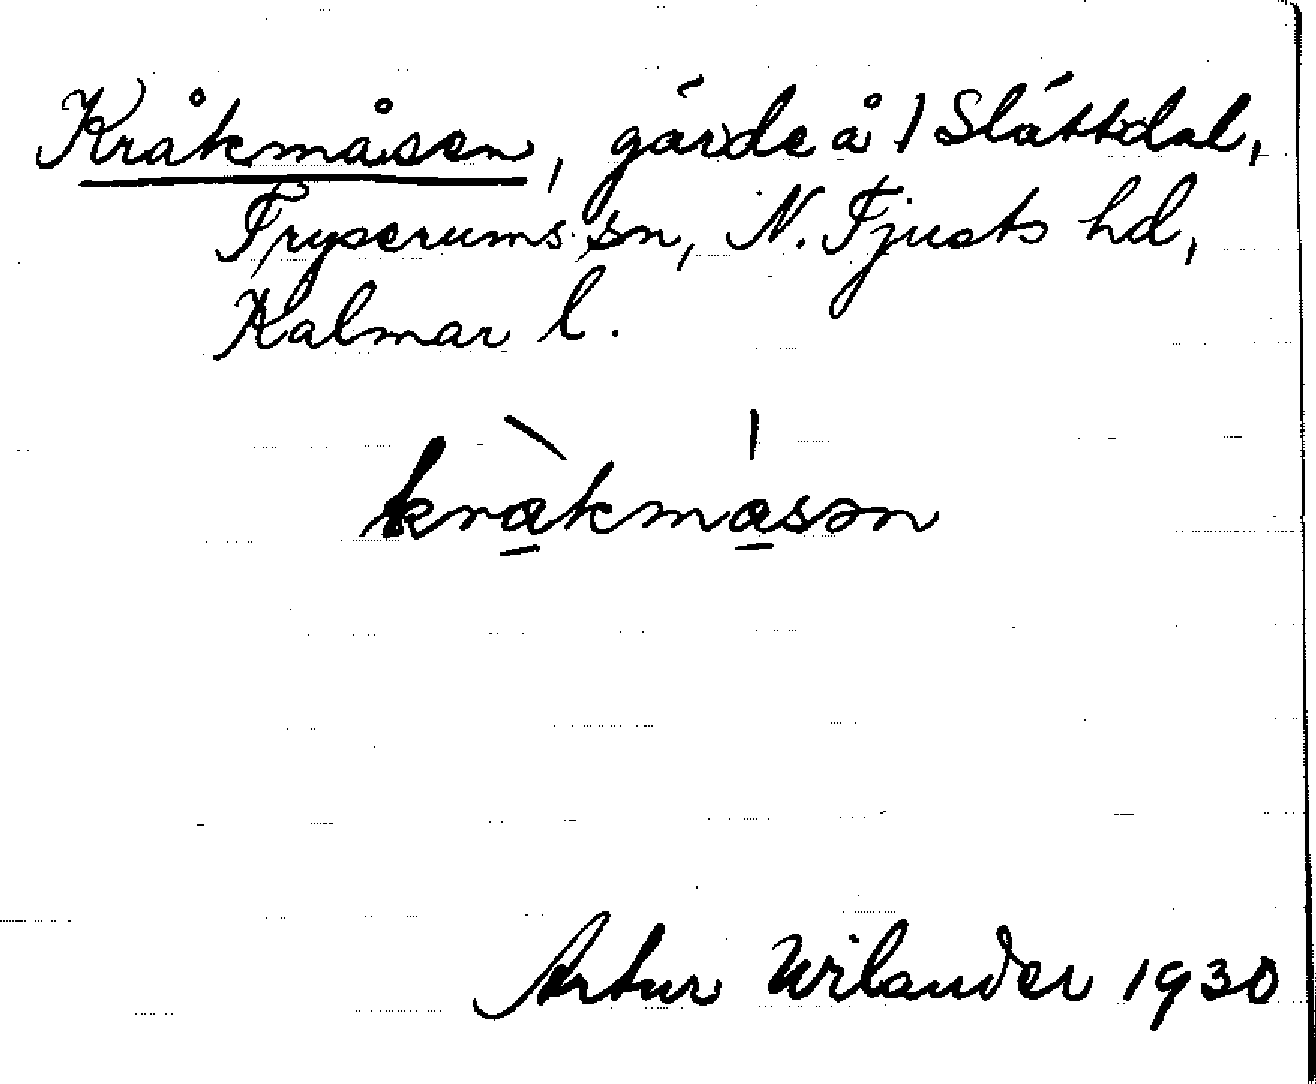 Kråkmåsen, gärde å 1 Slättdal,
Tryserums sn, N. Tjusts hd,
Kalmar l.
kràkmásən
Artur Wilander 1930